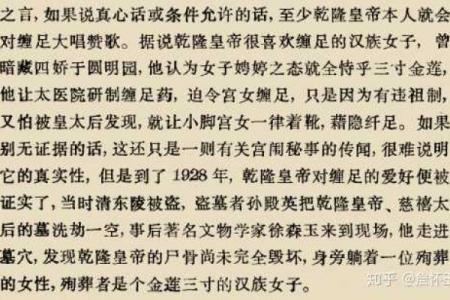 之言，如果说真心话或条件允许的话，至少乾隆皇帝本人就会
对缠足大唱赞歌。据说乾隆皇帝很喜欢缠足的汉族女子，曾
暗藏四娇于圆明园，他认为女子娉婷之态就全恃乎三寸金莲，
他让太医院研制缠足药，迫令宫女缠足，只是因为有违祖制，
又怕被皇太后发现，就让小脚宫女一律着靴，藉隐纤足。如果
别无证据的话，这还只是一则有关宫闱秘事的传闻，很难说明
它的真实性，但是到了1928年，乾隆皇帝对缠足的爱好便被
证实了，当时清东陵被盗，盗墓者孙殿英把乾隆皇帝、慈禧太
后的墓洗劫一空，事后著名文物学家徐森玉来到现场，他走进
墓穴，发现乾隆皇帝的尸骨尚未完全毁坏，身旁躺着一位殉葬
的女性，殉葬者是个金莲三寸的汉族女子。
知乎